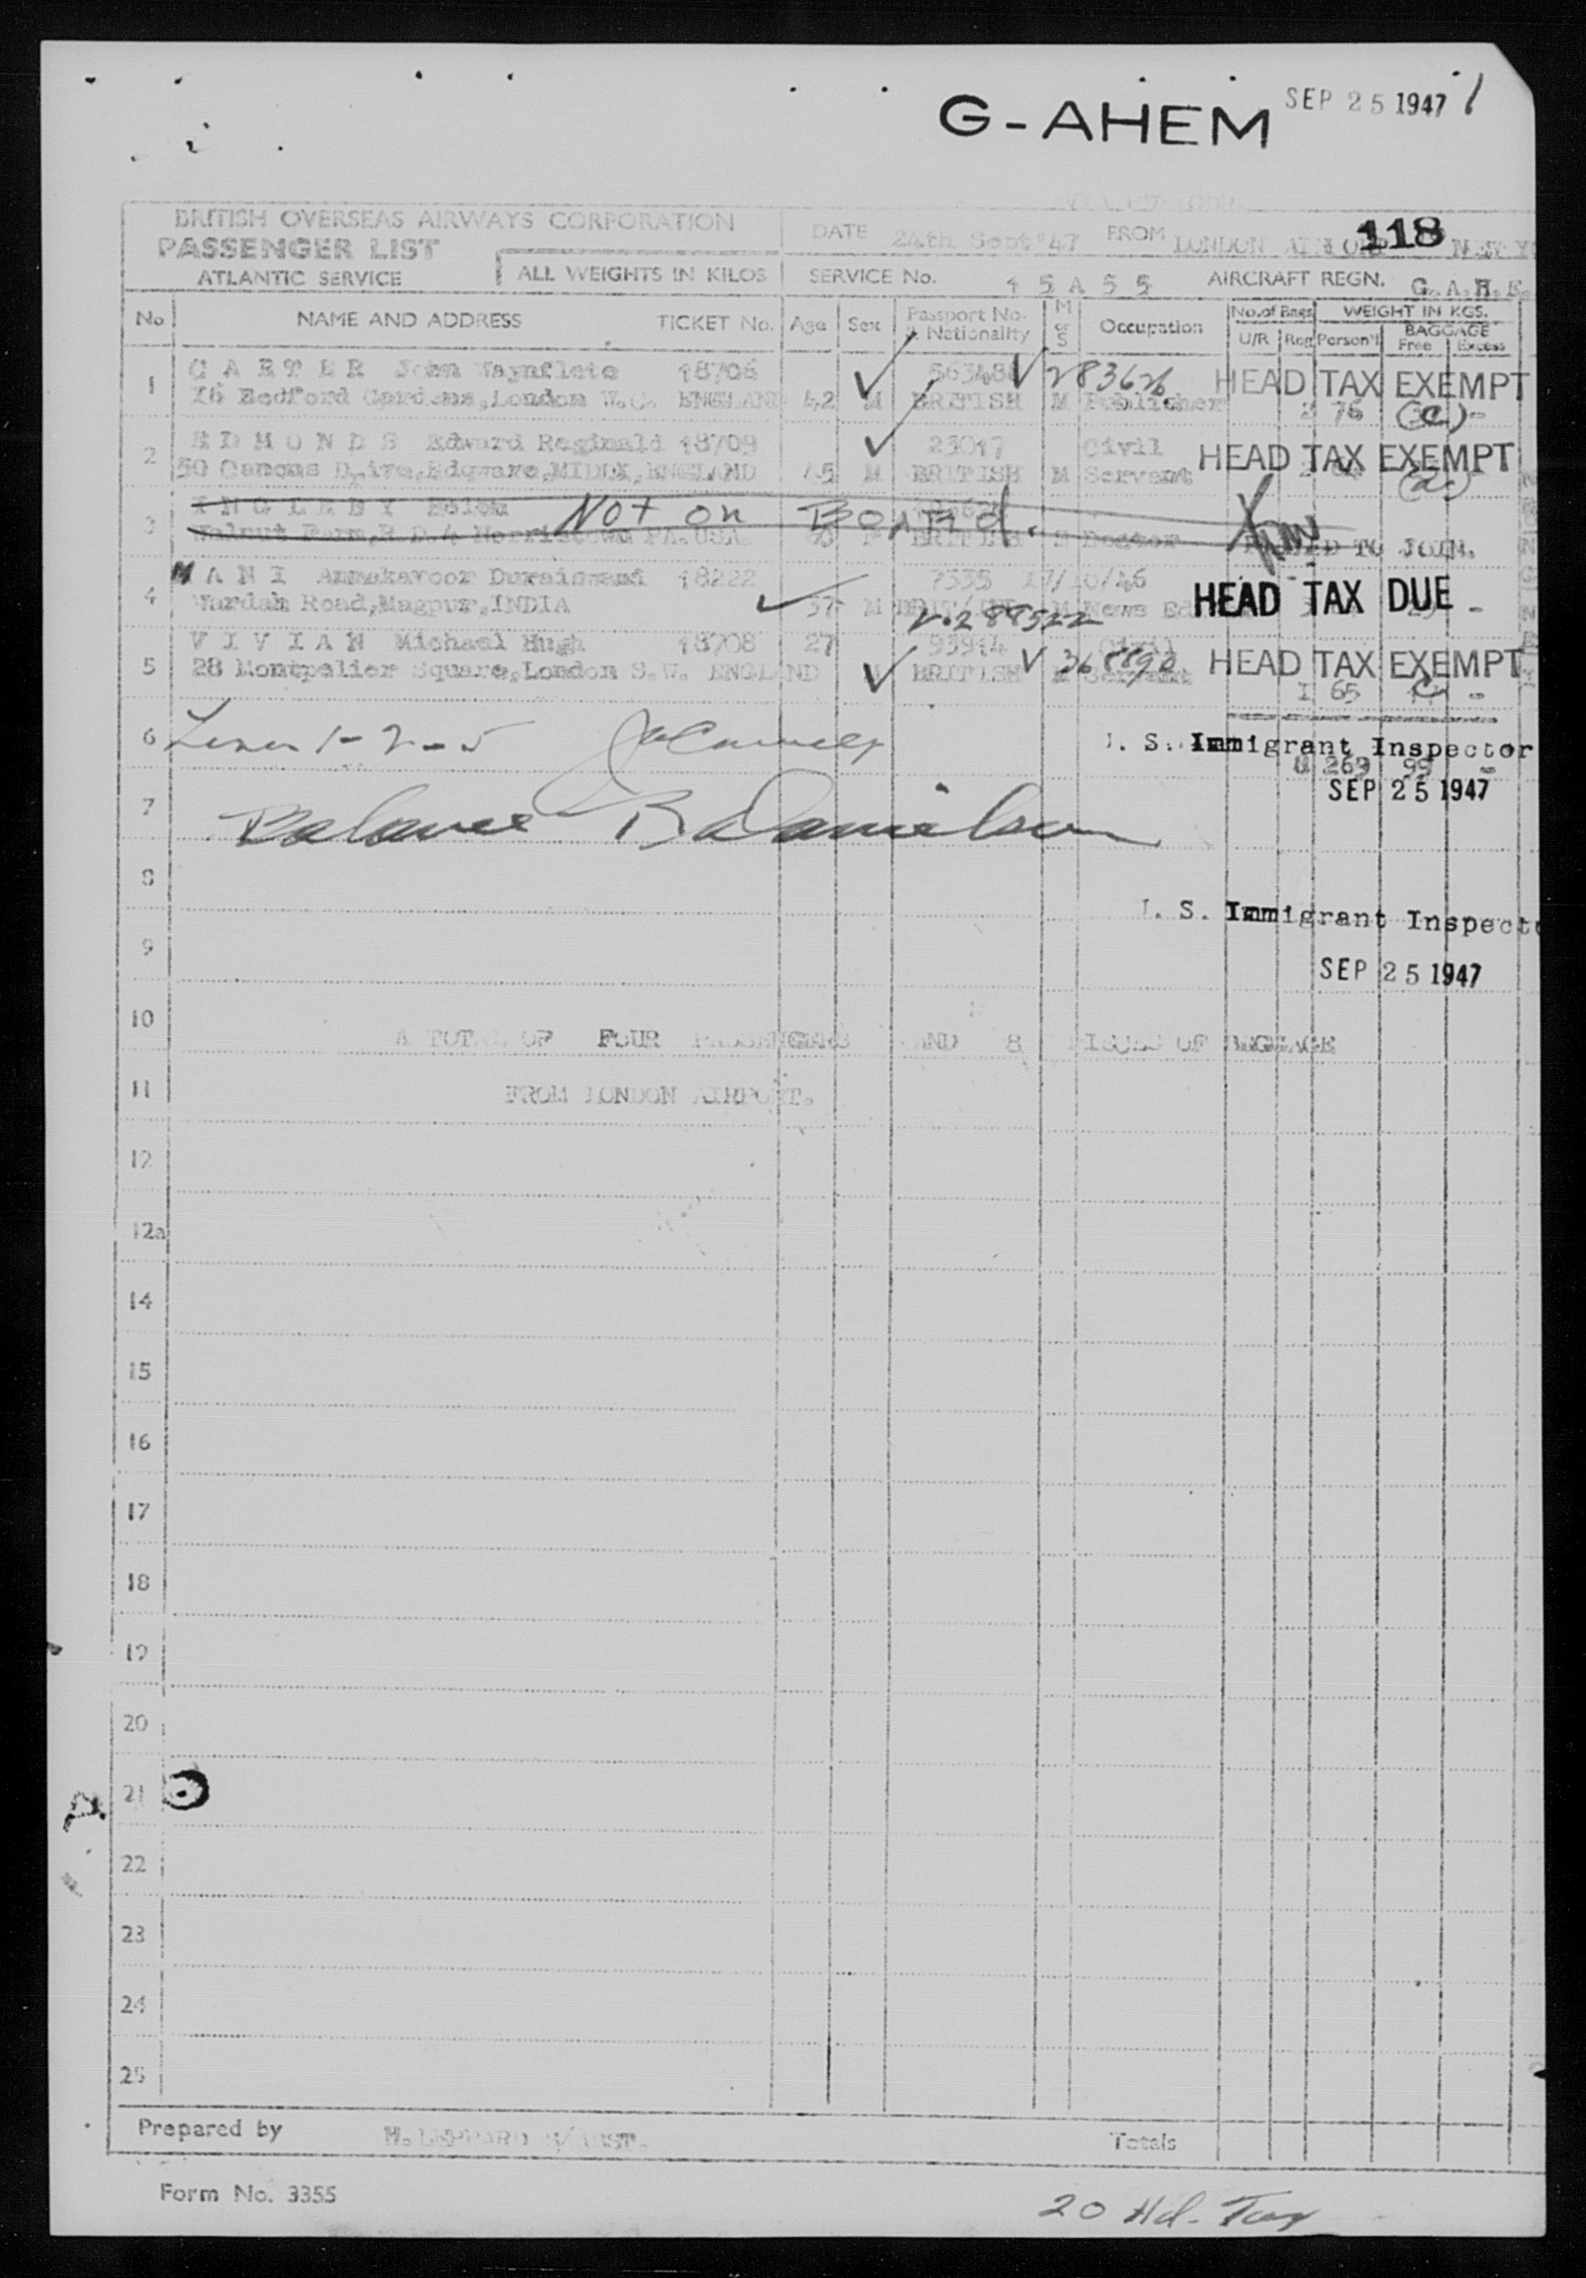 G-AHEM SEP 25 1947 1
BRITISH OVERSEAS AIRWAYS CORPORATION
PASSENGER LIST
ATLANTIC SERVICE
ALL WEIGHTS IN KILOS
DATE 24th Sept '47 FROM LONDON 118 NEW Y
SERVICE No. 15A55 AIRCRAFT REGN. G.A.H.E.
No NAME AND ADDRESS TICKET No. Age Sex Passport No. & Nationality M or S Occupation No. of Bags U/R Reg WEIGHT IN KGS. Person'l BAGGAGE Free Excess
1 CARTER John Waynflete 18706 283626 HEAD TAX EXEMPT
16 Bedford Gardens, London W.8. ENGLAND 42 M BRITISH M Publisher 2 76 (C) -
2 EDMONDS Edward Reginald 18709 23017 Civil HEAD TAX EXEMPT
50 Canons Drive, Edgware, MIDDX, ENGLAND 45 M BRITISH M Servant
3 INGLEBY Helen Not on Board.
Walnut Farm, R.D.4 Norristown PA. USA. F BRITISH S Doctor FAILED TO JOIN.
4 MANI Annakavoor Duraiswami 18222 7335 17/10/46 HEAD TAX DUE
Wardah Road, Nagpur, INDIA 37 M M News Ed
V.288522
5 VIVIAN Michael Hugh 18708 27 93914 Civil HEAD TAX EXEMPT
28 Montpelier Square, London S.W. ENGLAND BRITISH V 368890 Servant 1 65 -
6 Lines 1-2-5
U. S. Immigrant Inspector
8 269 99 -
SEP 25 1947
7 Balance B Danielson
8
U. S. Immigrant Inspecto
9
SEP 25 1947
10 A TOTAL OF FOUR PASSENGERS AND 8 PIECES OF BAGGAGE
11 FROM LONDON AIRPORT.
12
12a
14
15
16
17
18
19
20
21
22
23
24
25
Prepared by Totals
Form No. 3355
20 Hd. Tax